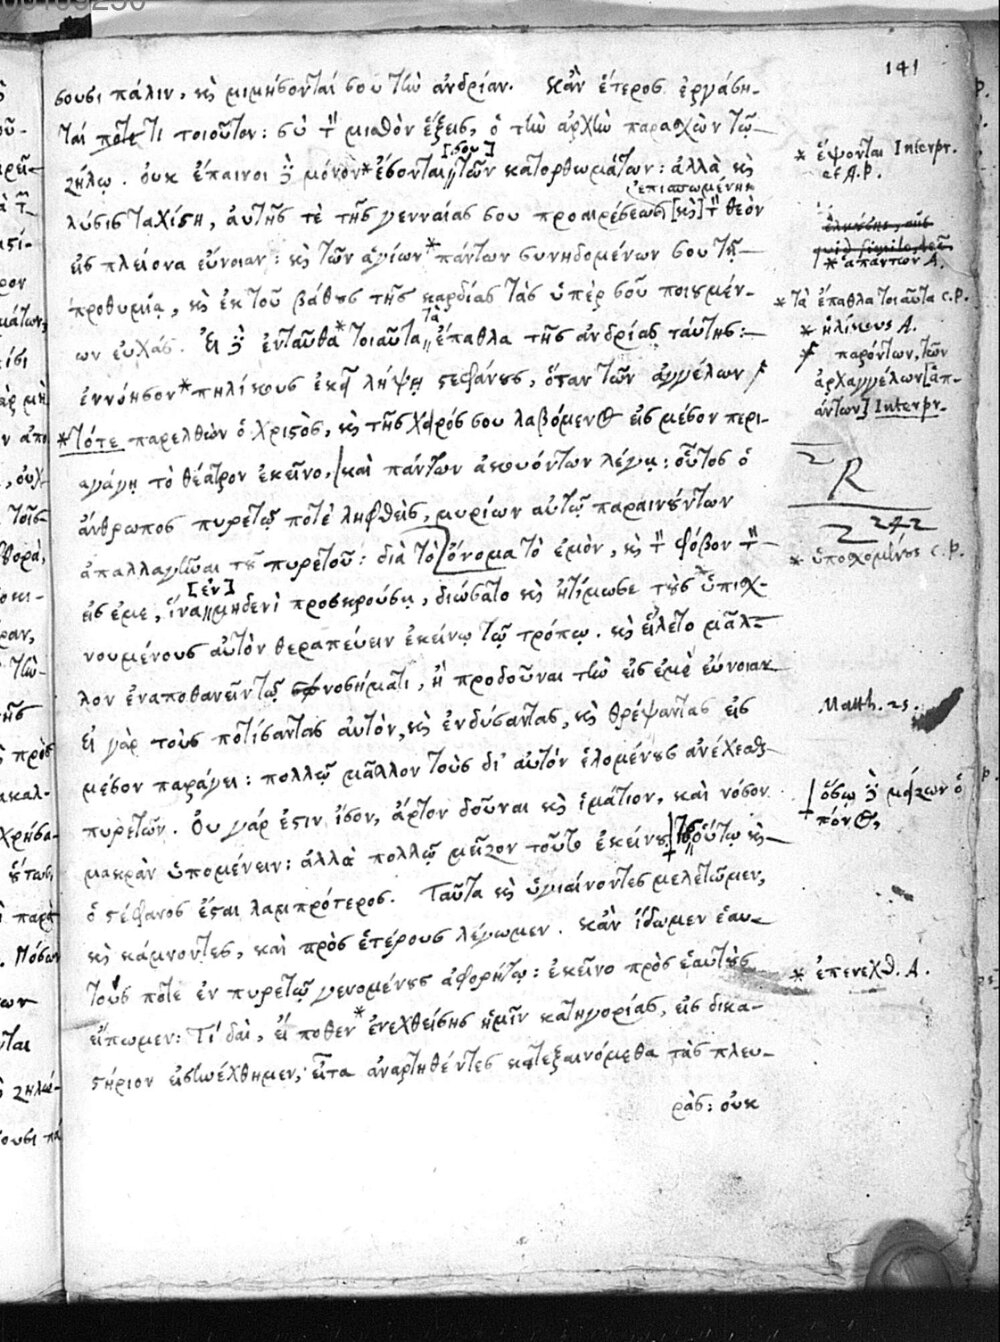 141
σουσι πάλιν, κ̀ μιμήσονταί σου τὼ ἀνδρίαν. κἂν ἕτερος ἐργάση-
ται ποτέ τι τοιοῦτον: σὺ τ̀ μισθὸν ἕξεις, ὁ τὼ ἀρχὼ παρασχὼν τῷ
ζήλῳ. οὐκ ἔπαινοι ȝ̀ μόνον* ἔσονται [σου] τῶν κατορθωμάτων: ἀλλὰ κ̀
λύσις ταχίστη, αὐτῆς τὲ τῆς γενναίας σου προαιρέσεως ἐπισπωμένης [κ̀] τ̀ θεὸν
εἰς πλείονα εὔνοιαν: κ̀ τῶν ἁγίων* πάντων συνηδομένων σου τῇ
προθυμίᾳ, κ̀ ἐκ τοῦ βάθȣς τῆς καρδίας τὰς ὑπὲρ σοῦ ποιȣμέν-
ων εὐχάς. Εἰ ȝ̀ ἐνταῦθα* τοιαῦτα τὰ ἔπαθλα τῆς ἀνδρίας ταύτης:
ἐννόησον* πηλίκους ἐκεῖ λήψῃ ϛεφάνȣς, ὅταν τῶν ἀγγέλων
*τότε παρελθὼν ὁ Χριϛὸς, κ̀ τῆς χειρός σου λαβόμενος εἰς μέσον περι-
αγάγῃ τὸ θέατρον ἐκεῖνο, καὶ πάντων ἀκουόντων λέγῃ: οὗτος ὁ
ἄνθρωπος πυρετῷ ποτὲ ληφθεὶς, μυρίων αὐτῷ παραινȣντων
ἀπαλλαγῶαι τȣ πυρετοῦ: διὰ τὸ ὄνομα τὸ ἐμὸν, κ̀ τ̀ φόβον τ̀
εἰς ἐμὲ, ἵνα [ἐν] μηδενὶ προσκρούσῃ, διώσατο κ̀ ἠτίμωσε τȣς* ὑπισχ-
νουμένους αὐτὸν θεραπεύειν ἐκείνῳ τῷ τρόπῳ. κ̀ εἵλετο μᾶλ-
λον ἐναποθανεῖν τῷ νοσήματι, ἢ προδοῦναι τὼ εἰς ἐμὲ εὔνοιαν
εἰ γὰρ τοὺς ποτίσαντας αὐτὸν, κ̀ ἐνδύσαντας, κ̀ θρέψαντας εἰς
μέσον παράγει: πολλῷ μᾶλλον τοὺς δι' αὐτὸν ἑλομένȣς ἀνέχεσθαι
πυρετῶν. Οὐ γάρ ἐϛιν ἴσον, ἄρτον δοῦναι κ̀ ἱμάτιον, καὶ νόσον
μακρὰν ὑπομένειν: ἀλλὰ πολλῷ μεῖζον τοῦτο ἐκείνȣ οὕτω κ̀
ὁ ϛέφανος ἔϛαι λαμπρότερος. Ταῦτα κ̀ ὑγιαίνοντες μελετῶμεν,
κ̀ κάμνοντες, καὶ πρὸς ἑτέρους λέγωμεν. κἂν ἴδωμεν ἑαυ-
τοὺς ποτε ἐν πυρετῷ γενομένȣς ἀφορήτῳ: ἐκεῖνο πρὸς ἑαυτȣς
εἴπωμεν: Τί δαὶ, εἴ ποθεν* ἐνεχθείσης ἡμῖν κατηγορίας, εἰς δικα-
ϛήριον εἰσωέχθημεν, εἶτα ἀναρτηθέντες κατεξαινόμεθα τὰς πλευ-
ρὰς: οὐκ
* ἕψονται Interpr.
et A.P.
* ἁπάντων A.
* τὰ ἔπαθλα τοιαῦτα C.P.
* ἡλίκους A.
παρόντων, τῶν
ἀρχαγγέλων [ἁπ-
άντων] Interpr.
2 R
2 242
* ὑποσχομένȣς C.P.
Matth. 25.
ὅσῳ ȝ̀ μείζων ὁ
πόνος,
* ἐπενεχθ. A.